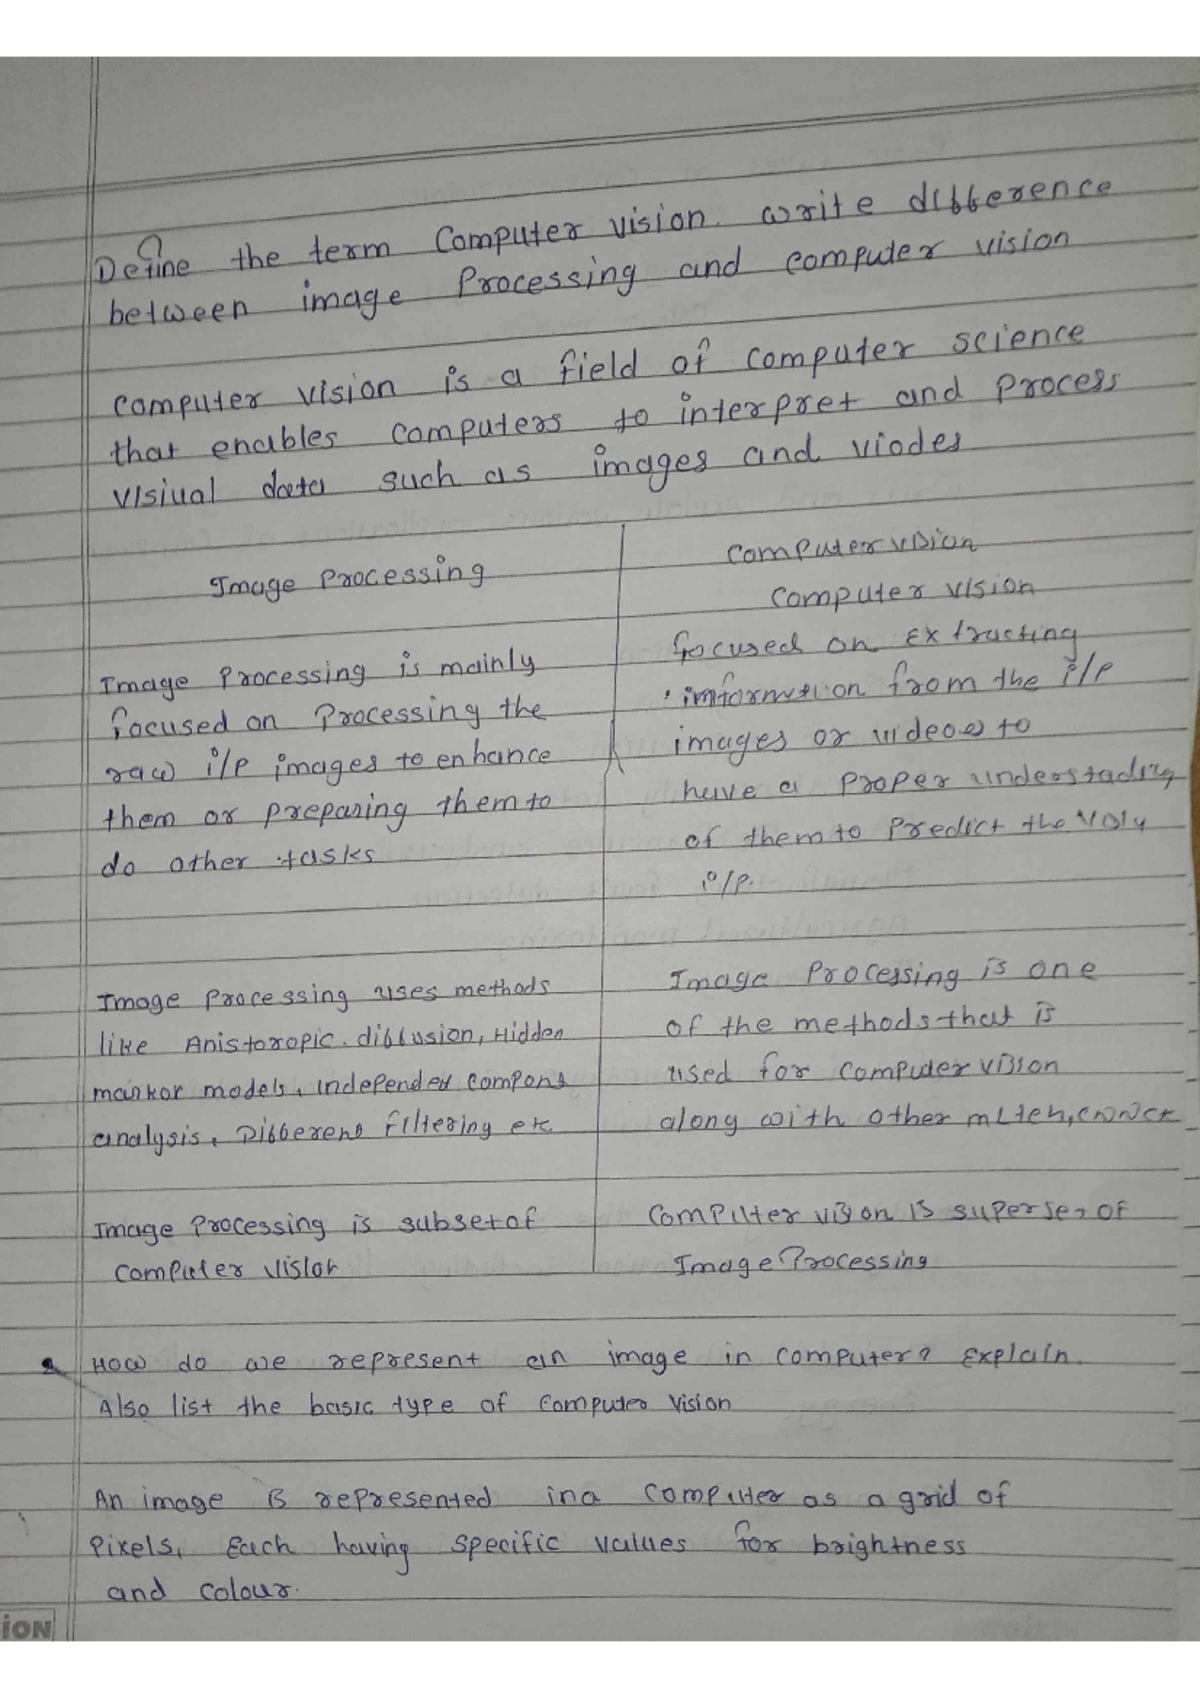 Define the term Computer vision. write difference
between image Processing and computer vision
computer vision is a field of computer science
that enables computers to interpret and process
visiual data such as images and viodes
Image Processing
Computer vision
Image Processing is mainly
focused on Processing the
raw i/p images to enhance
them or preparing them to
do other tasks
Computer vision
focused on extracting
information from the i/p
images or videoes to
have a proper understading
of them to Predict the
o/p.
Image Processing uses methods
like Anistoropic diffusion, Hidden
markor models, independed compont
analysis, Different filtering etc
Image Processing is one
of the methods that is
used for computer vision
along with other
Image Processing is subset of
computer vision
Computer vision is superset of
Image Processing
2. How do we represent an image in computer? Explain.
Also list the basic type of computer vision
An image is represented in a computer as a grid of
pixels, Each having specific values for brightness
and colour.
iON